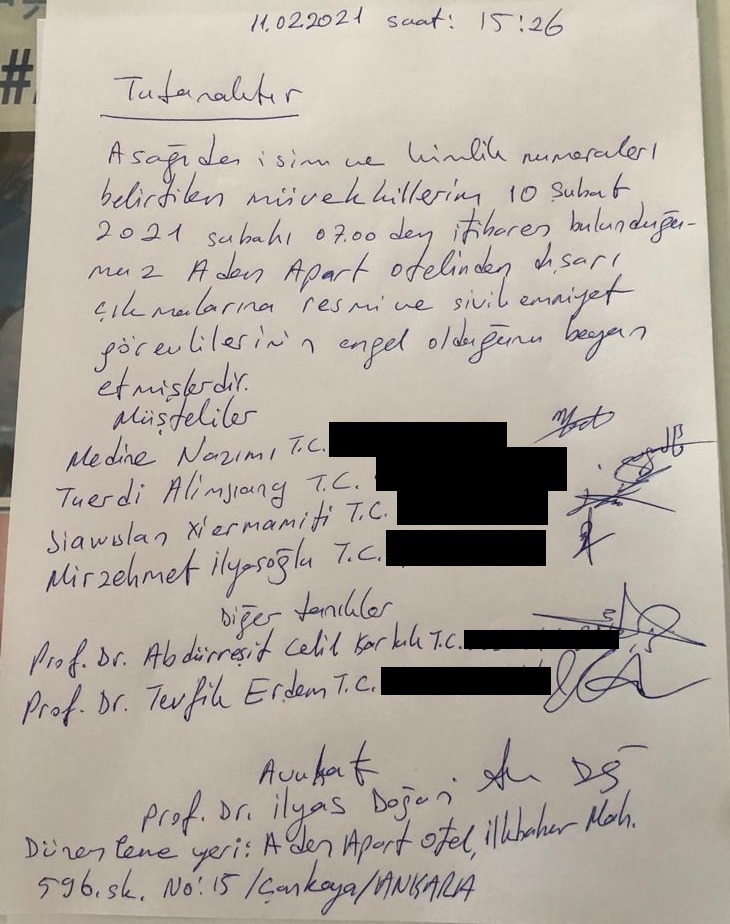 #
11.02.2021 saat: 15:26
Tutanaktır
Aşağıda isim ve kimlik numaraları
belirtilen müvekkillerim 10 Şubat
2021 sabahı 07.00 den itibaren bulunduğu-
muz Aden Apart otelinden dışarı
çıkmalarına resmi ve sivil emniyet
görevlilerinin engel olduğunu beyan
etmişlerdir.
Müşteliler
Medine Nazımı T.C.
Tuerdi Alimjiang T.C.
Siawulan Xiermamiti T.C.
Mirzehmet İlyasoğlu T.C.
Diğer tanıklar
Prof. Dr. Abdürreşit Celil Karluk T.C.
Prof. Dr. Tevfik Erdem T.C.
Avukat
Prof. Dr. İlyas Doğan
Düzenleme yeri: Aden Apart Otel, İlkbahar Mah.
596. sk. No: 15 /Çankaya/ANKARA